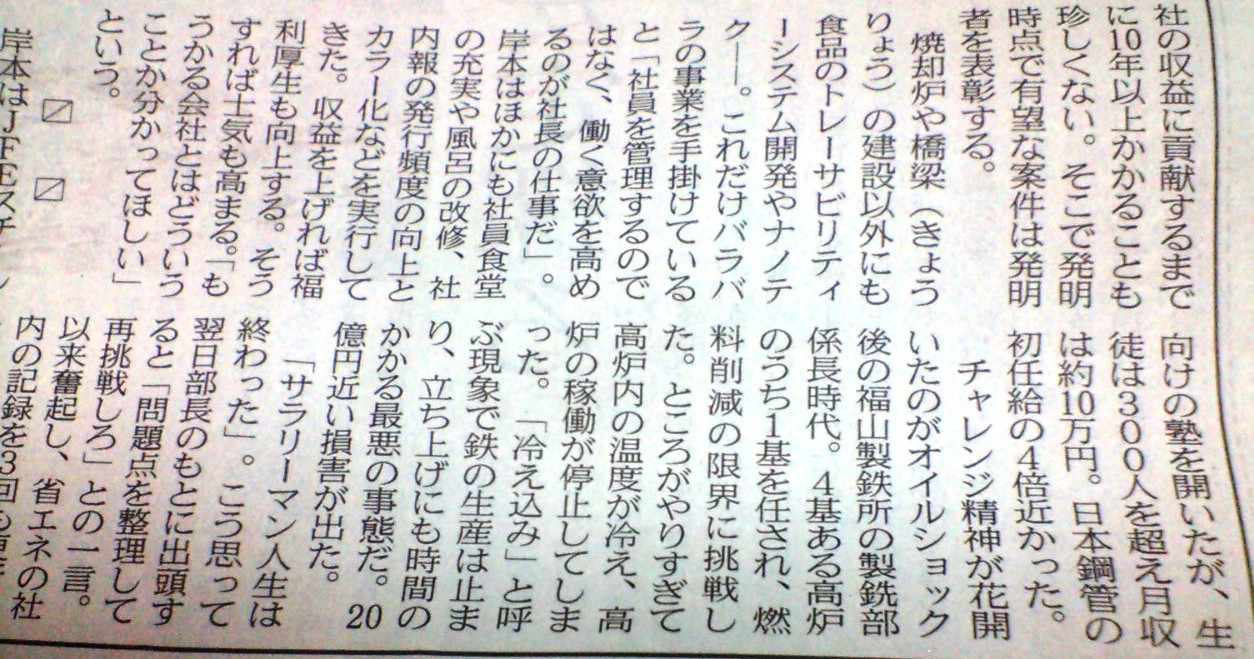 社の収益に貢献するまで
に10年以上かかることも
珍しくない。そこで発明
時点で有望な案件は発明
者を表彰する。
焼却炉や橋梁（きょう
りょう）の建設以外にも
食品のトレーサビリティ
ーシステム開発やナノテ
ク――。これだけバラバ
ラの事業を手掛けている
と「社員を管理するので
はなく、働く意欲を高め
るのが社長の仕事だ」。
岸本はほかにも社員食堂
の充実や風呂の改修、社
内報の発行頻度の向上と
カラー化などを実行して
きた。収益を上げれば福
利厚生も向上する。そう
すれば士気も高まる。「も
うかる会社とはどういう
ことか分かってほしい」
という。
岸本はJFEスチ
向けの塾を開いたが、生
徒は300人を超え月収
は約10万円。日本鋼管の
初任給の4倍近かった。
チャレンジ精神が花開
いたのがオイルショック
後の福山製鉄所の製銑部
係長時代。4基ある高炉
のうち1基を任され、燃
料削減の限界に挑戦し
た。ところがやりすぎて
高炉内の温度が冷え、高
炉の稼働が停止してしま
った。「冷え込み」と呼
ぶ現象で鉄の生産は止ま
り、立ち上げにも時間の
かかる最悪の事態だ。20
億円近い損害が出た。
「サラリーマン人生は
終わった」。こう思って
翌日部長のもとに出頭す
ると「問題点を整理して
再挑戦しろ」との一言。
以来奮起し、省エネの社
内の記録を3回も